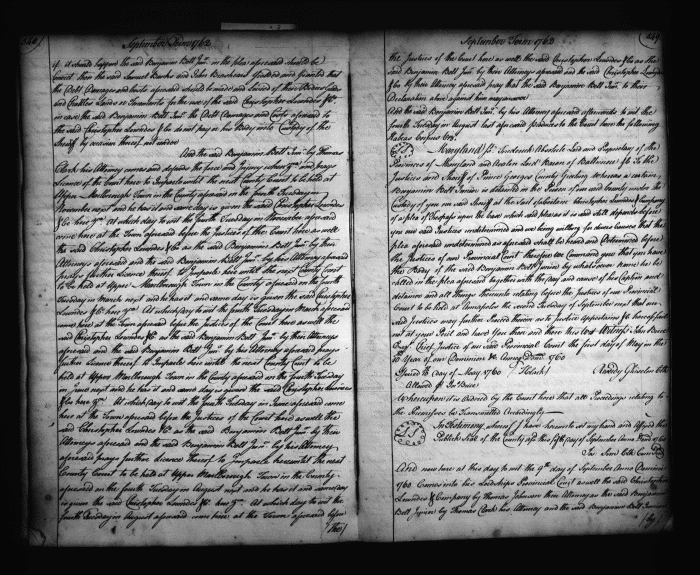 September Term 1762
if it should happen the said Benjamin Bell Junr. in the plea aforesaid should be
Convict then the said Samuel and John granted that
the Debt Damages and Costs aforesaid should be made and Levied of their Bodies Goods
and Chattles Lands or Tenements to the use of the said Christopher Lowndes &Co.
in case the said Benjamin Bell Junr. the Debt Damages and Costs aforesaid to
the said Christopher Lowndes &Co do not pay or his Body into Custody of the
Sheriff by occasion thereof not render
And the said Benjamin Bell Junr. by Thomas
Clark his Attorney comes and defends the force and injury when &ca. and prays
Licence of the Court here to Imparle untill the next County Court to be held at
Upper Marlborough Town in the County aforesaid on the fourth Tuesday in
November next and he has it and same day is given the said Christopher Lowndes
&Co here &ca. At which day to wit the fourth Tuesday in November aforesaid
come here at the Town aforesaid before the Justices of the Court here as well
the said Christopher Lowndes &Co as the said Benjamin Bell Junr. by their
Attorneys aforesaid and the said Benjamin Bell Junr. by his Attorney aforesaid
prays further Licence thereof to Imparle here untill the next County Court
to be held at Upper Marlborough Town in the County aforesaid on the fourth
Tuesday in March next and he has it and same day is given the said Christopher
Lowndes &Co here &ca. At which day to wit the fourth Tuesday in March aforesaid
come here at the Town aforesaid before the Justices of the Court here as well the
said Christopher Lowndes &Co as the said Benjamin Bell Junr. by their Attorneys
aforesaid and the said Benjamin Bell Junr. by his Attorney aforesaid prays
further Licence thereof to Imparle here untill the next County Court to be
held at Upper Marlborough Town in the County aforesaid on the fourth Tuesday
in June next and he has it and same day is given the said Christopher Lowndes
&Co here &ca. At which day to wit the fourth Tuesday in June aforesaid come
here at the Town aforesaid before the Justices of the Court here as well the
said Christopher Lowndes &Co as the said Benjamin Bell Junr. by their
Attorneys aforesaid and the said Benjamin Bell Junr. by his Attorney
aforesaid prays further Licence thereof to Imparle here untill the next
County Court to be held at Upper Marlborough Town in the County
aforesaid on the fourth Tuesday in August next and he has it and same day
is given the said Christopher Lowndes &Co here &ca. At which day to wit the
fourth Tuesday in August aforesaid come here at the Town aforesaid before
the
September Term 1762
the Justices of the Court here as well the said Christopher Lowndes &Co as the
said Benjamin Bell Junr. by their Attorneys aforesaid and the said Christopher Lowndes
&Co by their Attorney aforesaid pray that the said Benjamin Bell Junr. to their
Declaration above against him may answer
And the said Benjamin Bell Junr. by his Attorney aforesaid afterwards to wit the
fourth Tuesday in August last aforesaid produces to the Court here the following
Habeas Corpus Viz.
Maryland ss. Frederick Absolute Lord and Proprietary of the
Provinces of Maryland and Avalon Lord Baron of Baltimore &c To the
Justices and Sheriff of Prince Georges County Greeting Whereas a certain
Benjamin Bell Junior is detained in the Prison of our said County under the
Custody of you our said Sheriff at the Suit of Christopher Lowndes & Company
of a plea of Trespass upon the Case which said plea as it is said still depends before
you our said Justices undetermined and we being willing for divers Causes that the
plea aforesaid undetermined as aforesaid shall be heard and Determined before
the Justices of our Provincial Court therefore We Command you that you have
the Body of the said Benjamin Bell Junior by whatsoever name he be
called in the plea aforesaid together with the day and cause of his Caption and
detainer and all things thereunto relating before the Justices of our Provincial
Court to be held at Annapolis the second Tuesday of September next that our
said Justices may further Proceed therein as to Justice appertains &c hereof fail
not at your Peril and have you then and there this Writ Witness John Brice
Esqr. Chief Justice of our said Provincial Court the first day of May in the
10 Year of our Dominion &c Annoq Domini 1760
Issued the day of May 1760
Reverdy Ghiselin Clk
Allowed
Whereupon it is ordered by the Court here that all Proceedings relating to
the Premisses be Transmitted Accordingly
In Testimony whereof I have hereunto set my hand and Affixed the
Publick Seal of the County afd. this fifth day of September Anno Domini 1760
And now here at this day to wit the 9th day of September Anno Domini
1760 Comes into his Lordships Provincial Court as well the said Christopher
Lowndes & Company by Thomas Johnson their Attorney as the said Benjamin
Bell Junior by Thomas Clark his Attorney and the said Benjamin Bell Junior
by